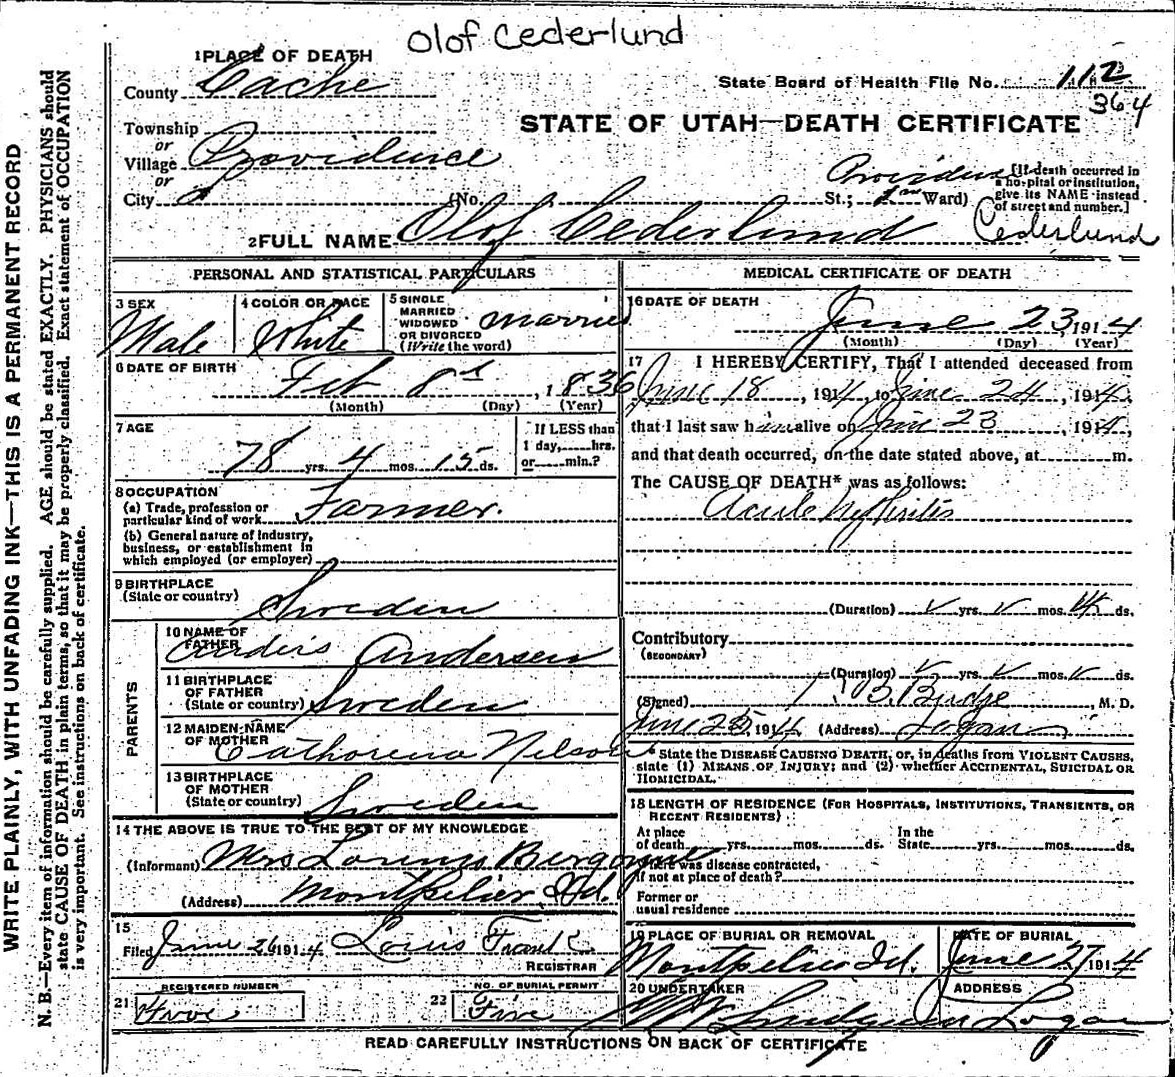 Olof Cederlund
1 PLACE OF DEATH
County Cache
State Board of Health File No. 112
364
Township
or
Village Providence
or
City
STATE OF UTAH—DEATH CERTIFICATE
(No. St.; Ward)
Providence
[If death occurred in
a hospital or institution,
give its NAME instead
of street and number.]
2 FULL NAME Olof Cederlund
Cederlund
PERSONAL AND STATISTICAL PARTICULARS
3 SEX
Male
4 COLOR OR RACE
White
5 SINGLE
MARRIED
WIDOWED
OR DIVORCED
(Write the word)
Married
6 DATE OF BIRTH
Feb 8th, 1836
(Month) (Day) (Year)
7 AGE
78 yrs. 4 mos. 15 ds.
If LESS than
1 day, hrs.
or min.?
8 OCCUPATION
(a) Trade, profession or
particular kind of work Farmer.
(b) General nature of industry,
business, or establishment in
which employed (or employer)
9 BIRTHPLACE
(State or country)
Sweden
PARENTS
10 NAME OF
FATHER
Anders Andersen
11 BIRTHPLACE
OF FATHER
(State or country) Sweden
12 MAIDEN NAME
OF MOTHER
Cathorena Nelson
13 BIRTHPLACE
OF MOTHER
(State or country) Sweden
14 THE ABOVE IS TRUE TO THE BEST OF MY KNOWLEDGE
(Informant) Mrs Lorenzo Burgoyne
(Address) Montpelier, Id.
15
Filed June 26 1914 Louis Frank
REGISTRAR
21 REGISTERED NUMBER
Five
22 NO. OF BURIAL PERMIT
Five
MEDICAL CERTIFICATE OF DEATH
16 DATE OF DEATH
June 23 1914
(Month) (Day) (Year)
17 I HEREBY CERTIFY, That I attended deceased from
June 18, 1914, to June 24, 1914,
that I last saw him alive on June 23, 1914,
and that death occurred, on the date stated above, at m.
The CAUSE OF DEATH* was as follows:
Acute Nephritis
(Duration) yrs. mos. 14 ds.
Contributory
(SECONDARY)
(Duration) yrs. mos. ds.
(Signed) B. Budge M. D.
June 25 1914 (Address) Logan
* State the DISEASE CAUSING DEATH, or, in deaths from VIOLENT CAUSES,
state (1) MEANS OF INJURY; and (2) whether ACCIDENTAL, SUICIDAL OR
HOMICIDAL.
18 LENGTH OF RESIDENCE (FOR HOSPITALS, INSTITUTIONS, TRANSIENTS, OR
RECENT RESIDENTS)
At place
of death yrs. mos. ds.
In the
State yrs. mos. ds.
Where was disease contracted,
If not at place of death?
Former or
usual residence
19 PLACE OF BURIAL OR REMOVAL
Montpelier Id.
DATE OF BURIAL
June 27 1914
20 UNDERTAKER
ADDRESS
Logan
READ CAREFULLY INSTRUCTIONS ON BACK OF CERTIFICATE
WRITE PLAINLY, WITH UNFADING INK—THIS IS A PERMANENT RECORD
N. B.—Every item of information should be carefully supplied. AGE should be stated EXACTLY. PHYSICIANS should
state CAUSE OF DEATH in plain terms, so that it may be properly classified. Exact statement of OCCUPATION
is very important. See instructions on back of certificate.